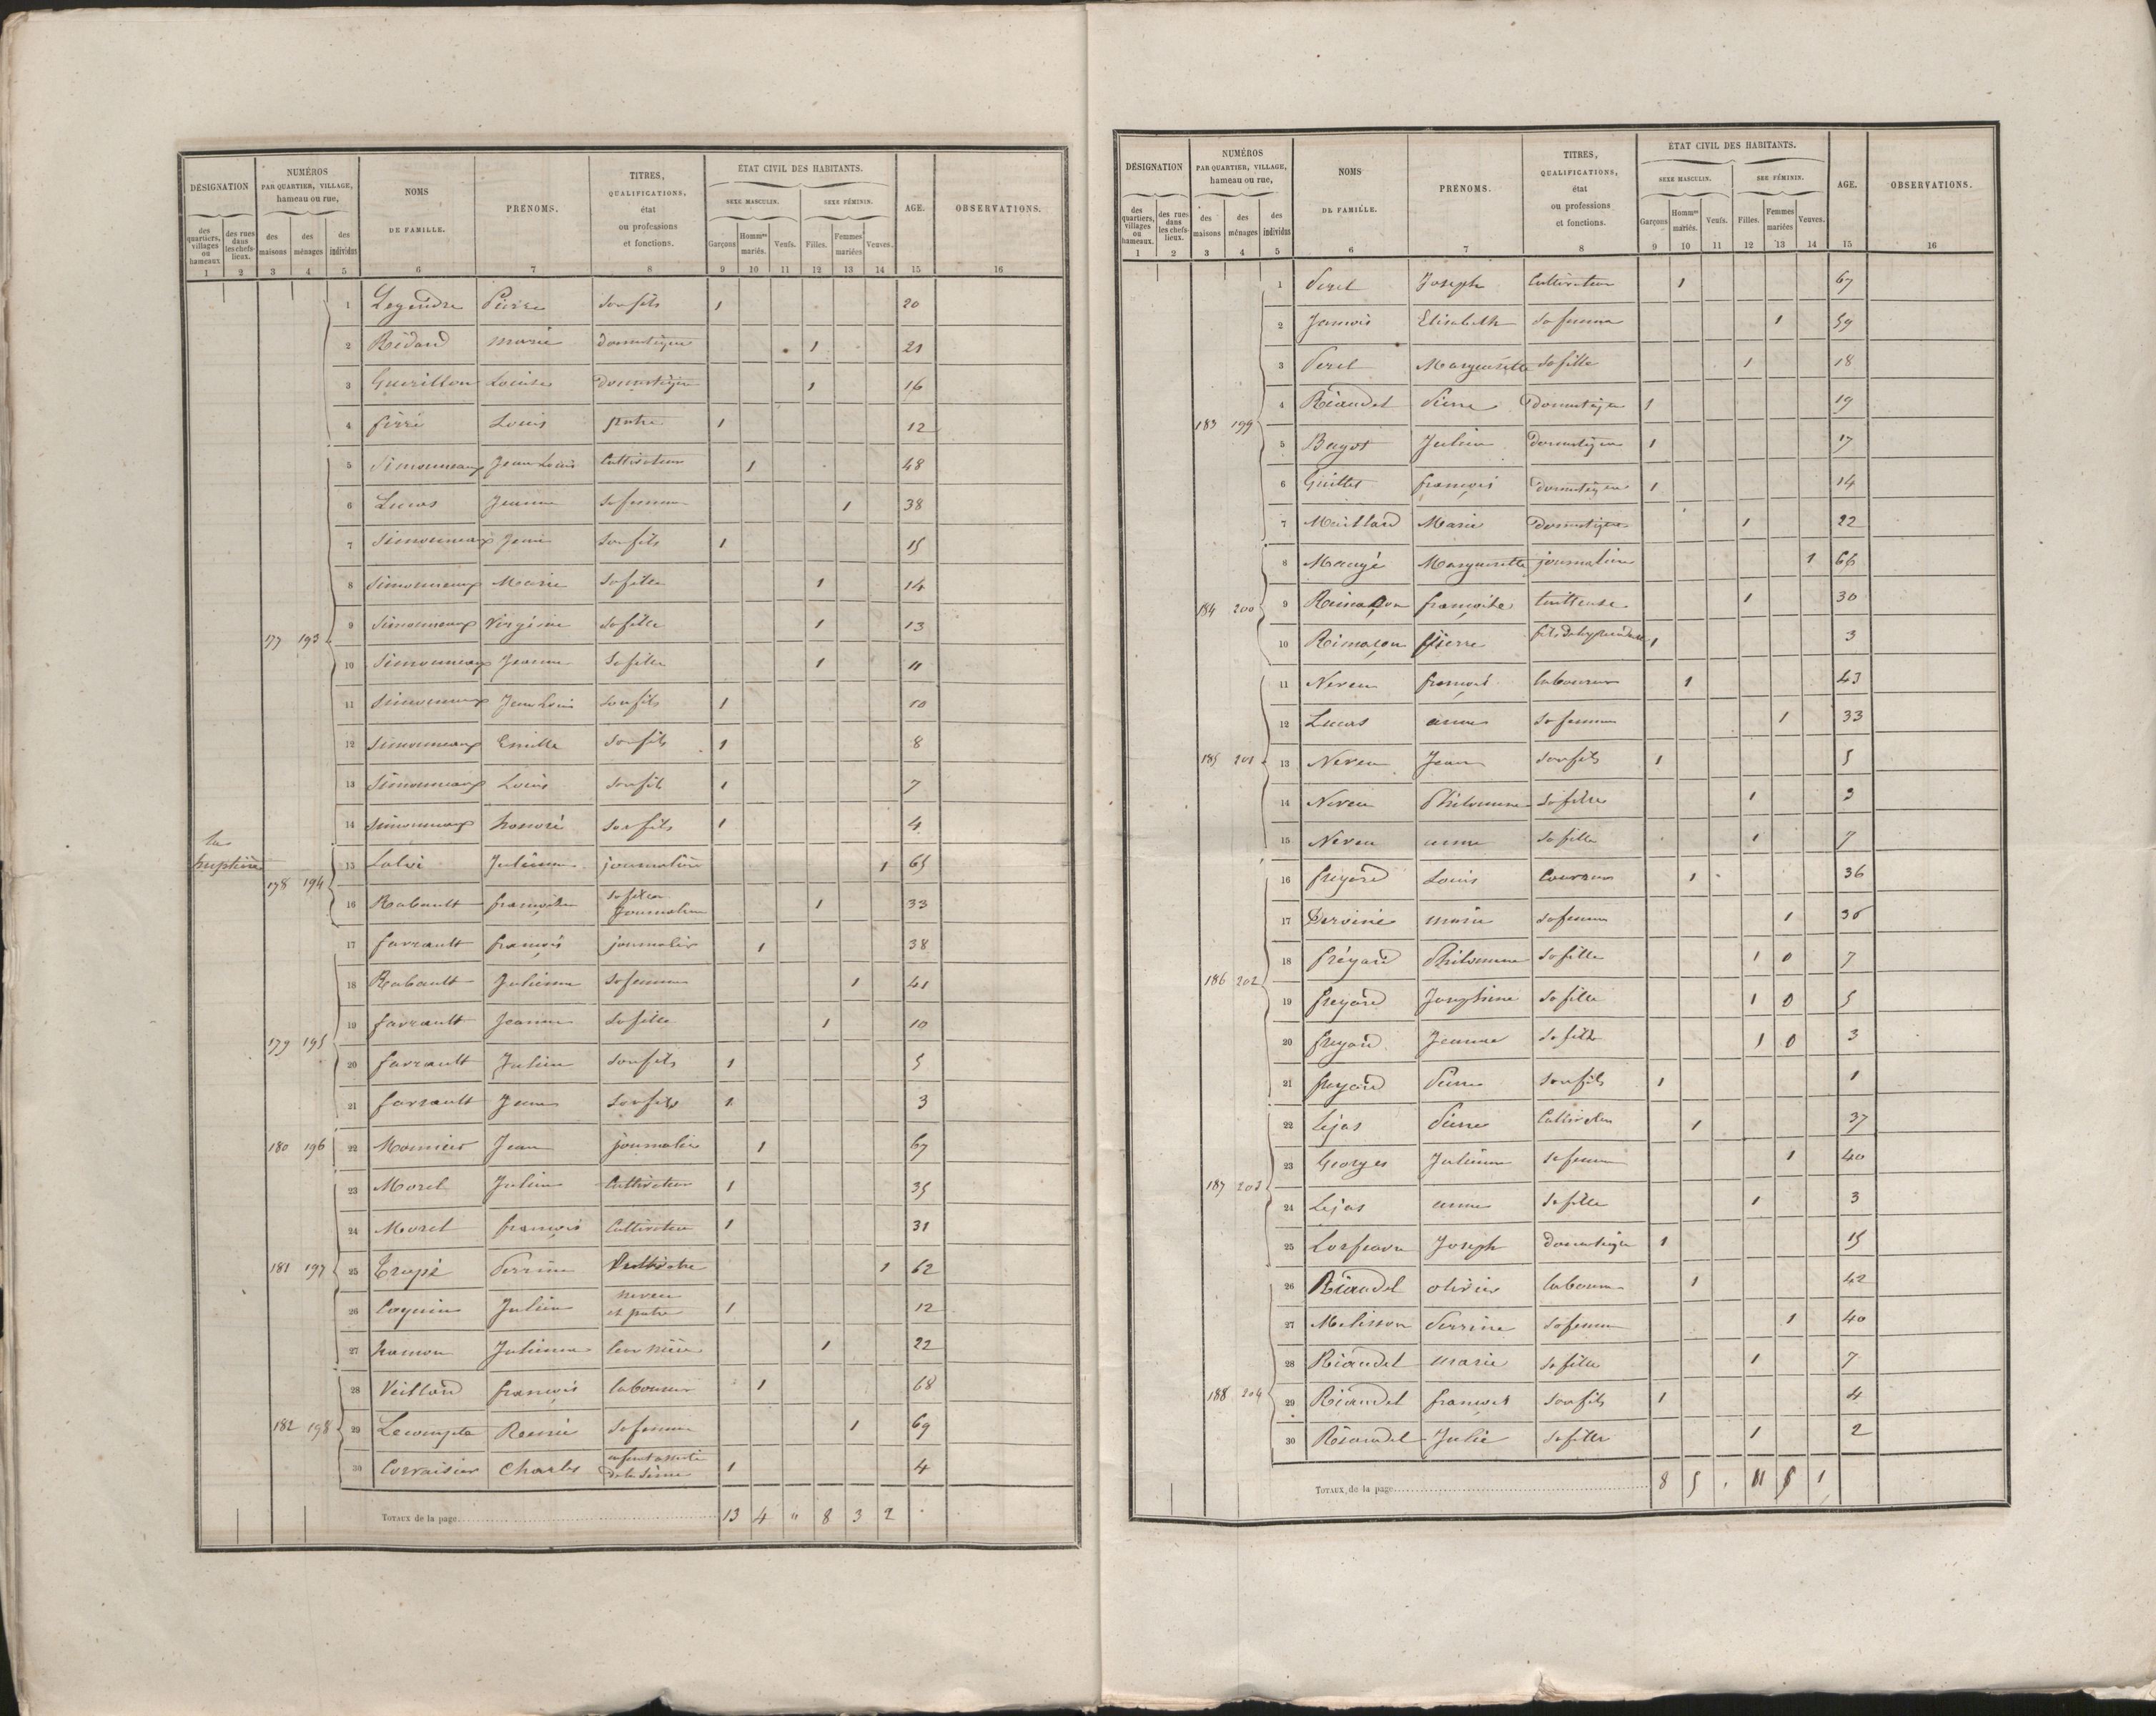 DÉSIGNATION
NUMÉROS
PAR QUARTIER, VILLAGE,
hameau ou rue,
NOMS
DE FAMILLE.
PRÉNOMS.
TITRES,
QUALIFICATIONS,
état
ou professions
et fonctions.
ÉTAT CIVIL DES HABITANTS.
SEXE MASCULIN.
SEXE FÉMININ.
AGE.
OBSERVATIONS.
des quartiers, villages ou hameaux
des rues dans les chefs-lieux.
des maisons
des ménages
des individus
Garçons
Hommes mariés.
Veufs.
Filles.
Femmes mariées
Veuves.
1 2 3 4 5 6 7 8 9 10 11 12 13 14 15 16
1 Legendre Pierre son fils 1 20
2 Bédard marie domestique 1 21
3 Guerillon Louise Domestique 1 16
4 ferré Louis patre 1 12
177 193
5 Simonneaux Jean Louis Cultivateur 1 48
6 Lucas Jeanne sa femme 1 38
7 Simonneaux Jean son fils 1 15
8 Simonneaux Marie sa fille 1 14
9 Simonneaux Virginie sa fille 1 13
10 Simonneaux Jeanne sa fille 1 11
11 Simonneaux Jean Louis son fils 1 10
12 Simonneaux Emille son fils 1 8
13 Simonneaux Louis son fils 1 7
14 Simonneaux honoré son fils 1 4
la
178 194
15 Julienne journalière 1 65
16 Rabault françoise sa fille journalière 1 33
179 195
17 farrault françois journalier 1 38
18 Rabault Julienne sa femme 1 41
19 farrault Jeanne sa fille 1 10
20 farrault Julien son fils 1 5
21 farrault Jean son fils 1 3
180 196
22 Monnier Jean journalier 1 67
181 197
23 Morel Julien Cultivateur 1 35
24 Morel françois Cultivateur 1 31
25 Perrine 1 62
26 Coquin Julien neveu et patre 1 12
27 hamon Julienne leur nièce 1 22
182 198
28 Veillard françois laboureur 1 68
29 Lecompte Renée sa femme 1 69
30 Corvaisier Charles enfant assisté de la Seine 1 4
TOTAUX de la page 13 4 " 8 3 2
DÉSIGNATION
NUMÉROS
PAR QUARTIER, VILLAGE,
hameau ou rue,
NOMS
DE FAMILLE.
PRÉNOMS.
TITRES,
QUALIFICATIONS,
état
ou professions
et fonctions.
ÉTAT CIVIL DES HABITANTS.
SEXE MASCULIN.
SEE FÉMININ.
AGE.
OBSERVATIONS.
des quartiers, villages ou hameaux.
des rues dans les chefs-lieux.
des maisons
des ménages
des individus
Garçons
Hommes mariés.
Veufs.
Filles.
Femmes mariées
Veuves.
1 2 3 4 5 6 7 8 9 10 11 12 13 14 15 16
183 199
1 Perel Joseph Cultivateur 1 67
2 Jamois Elisabeth sa femme 1 59
3 Perel Marguerite sa fille 1 18
4 Réaudel Pierre Domestique 1 19
5 Bagot Julien Domestique 1 17
6 Guillet françois Domestique 1 14
7 Maillard Marie Domestique 1 22
184 200
8 Maugé Marguerite journalière 1 66
9 Rimaçon françoise 1 30
10 Rimaçon Pierre fils de la précédente 1 3
185 201
11 Neveu françois laboureur 1 43
12 Lucas anne sa femme 1 33
13 Neveu Jean son fils 1 5
14 Neveu Philomene sa fille 1 3
15 Neveu anne sa fille 1 7
186 202
16 fregard Louis Couvreur 1 36
17 marie sa femme 1 36
18 frégard Philomene sa fille 1 0 7
19 fregard Josephine sa fille 1 0 5
20 fregard Jeanne sa fille 1 0 3
21 fregard Pierre son fils 1 1
187 203
22 Lejas Pierre Cultivateur 1 37
23 Georges Julienne sa femme 1 40
24 Lejas anne sa fille 1 3
25 Joseph domestique 1 15
188 204
26 Réaudel olivier laboureur 1 42
27 Melisson Perrine sa femme 1 40
28 Réaudel marie sa fille 1 7
29 Réaudel françois son fils 1 4
30 Réaudel Julie sa fille 1 2
TOTAUX de la page 8 5 11 5 1